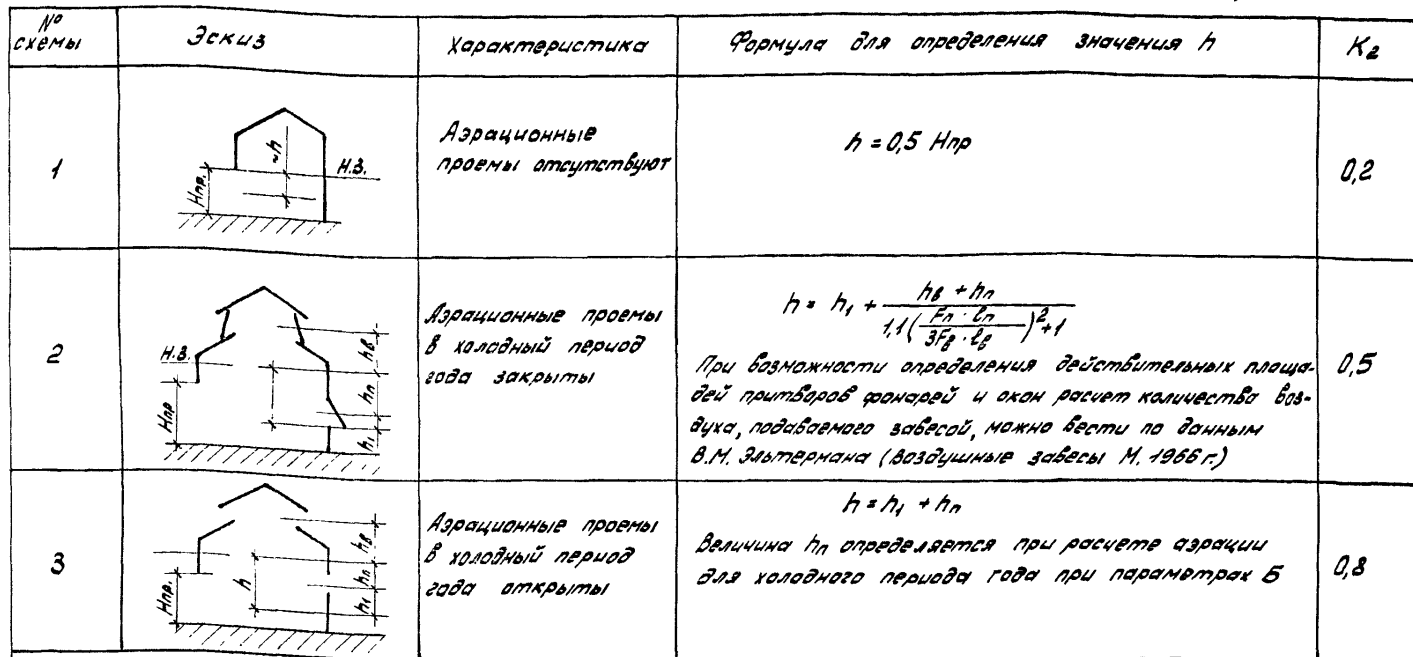 № схемы
Эскиз
Характеристика
Формула для определения значения h
K₂
1
Hпр.
~h
Н.З.
Аэрационные
проемы отсутствуют
h = 0,5 Hпр
0,2
2
Н.З.
Hпр
hв
hп
h₁
Аэрационные проемы
в холодный период
года закрыты
h = h₁ + (hв + hп) / (1,1(Fп · lп / 3Fв · lв)² + 1)
При возможности определения действительных площа-
дей притворов фонарей и окон расчет количества воз-
духа, подаваемого завесой, можно вести по данным
В.М. Эльтермана (Воздушные завесы М. 1966 г.)
0,5
3
Hпр.
h
hв
hп
h₁
Аэрационные проемы
в холодный период
года открыты
h = h₁ + hп
Величина hп определяется при расчете аэрации
для холодного периода года при параметрах Б
0,8